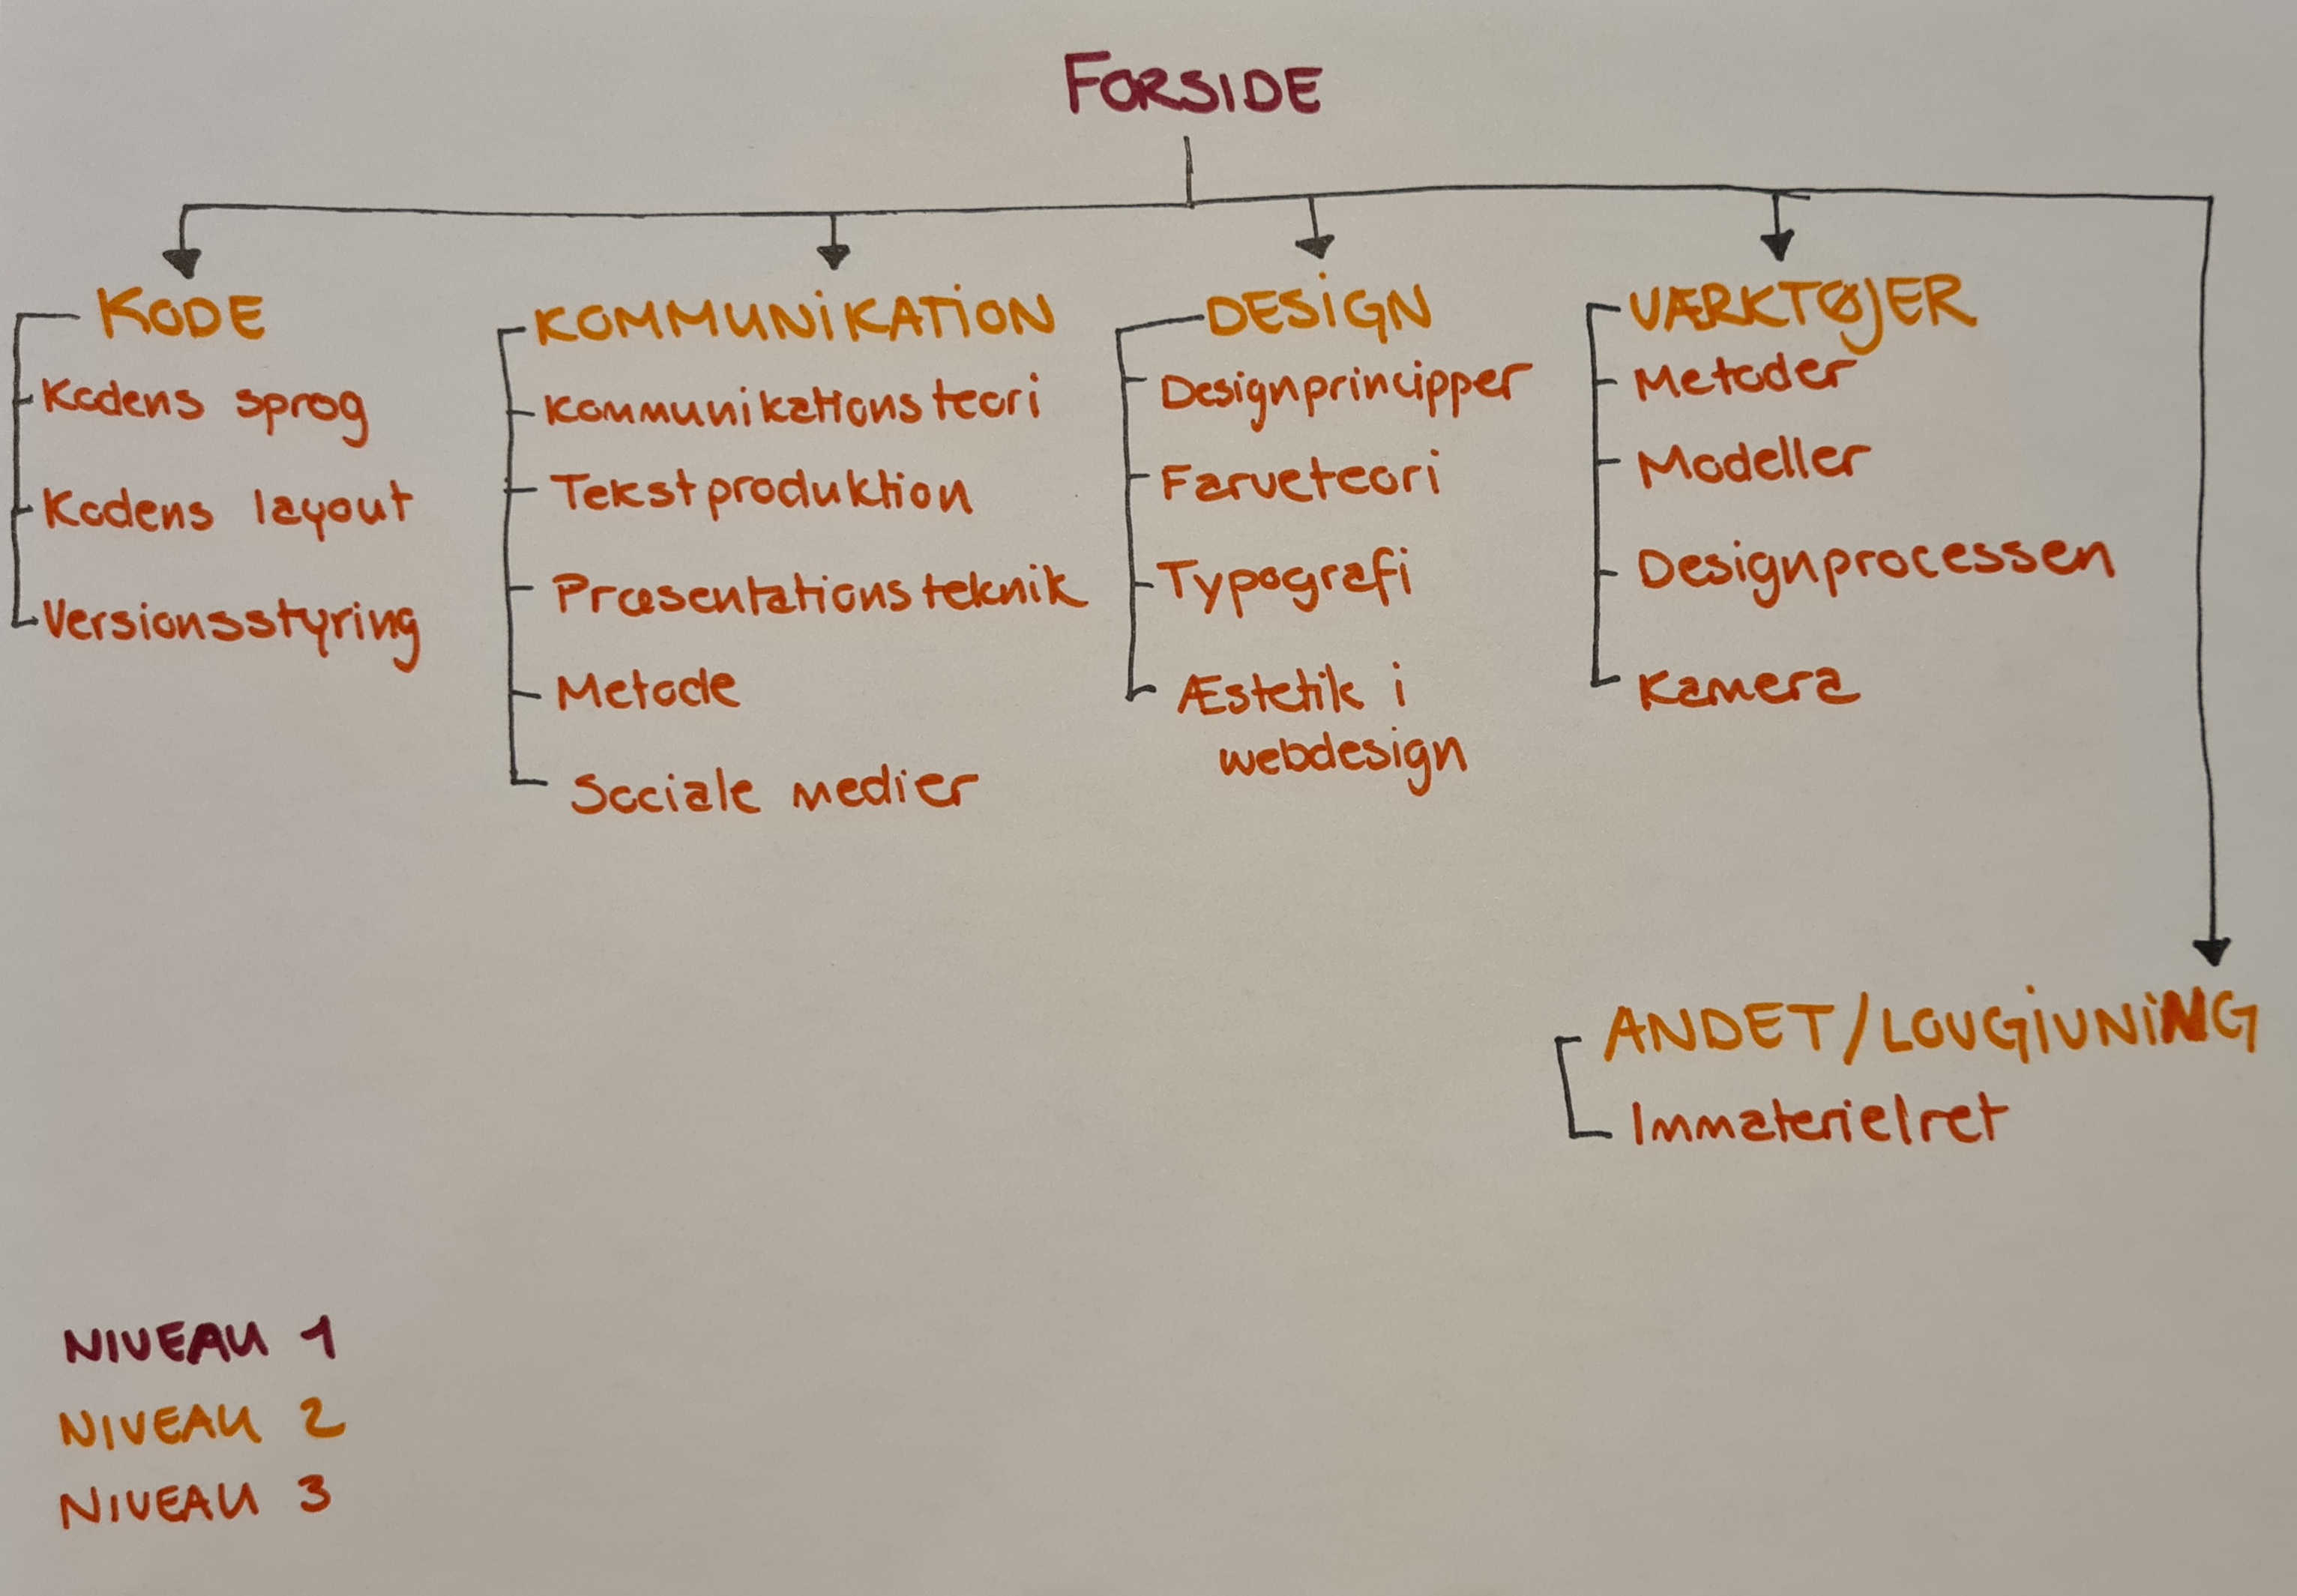 FORSIDE
KODE
Kodens sprog
Kodens layout
Versionsstyring
KOMMUNIKATION
Kommunikationsteori
Tekstproduktion
Præsentationsteknik
Metode
Sociale medier
DESIGN
Designprincipper
Farveteori
Typografi
Æstetik i
webdesign
VÆRKTØJER
Metoder
Modeller
Designprocessen
Kamera
ANDET/LOVGIVNING
Immaterielret
NIVEAU 1
NIVEAU 2
NIVEAU 3